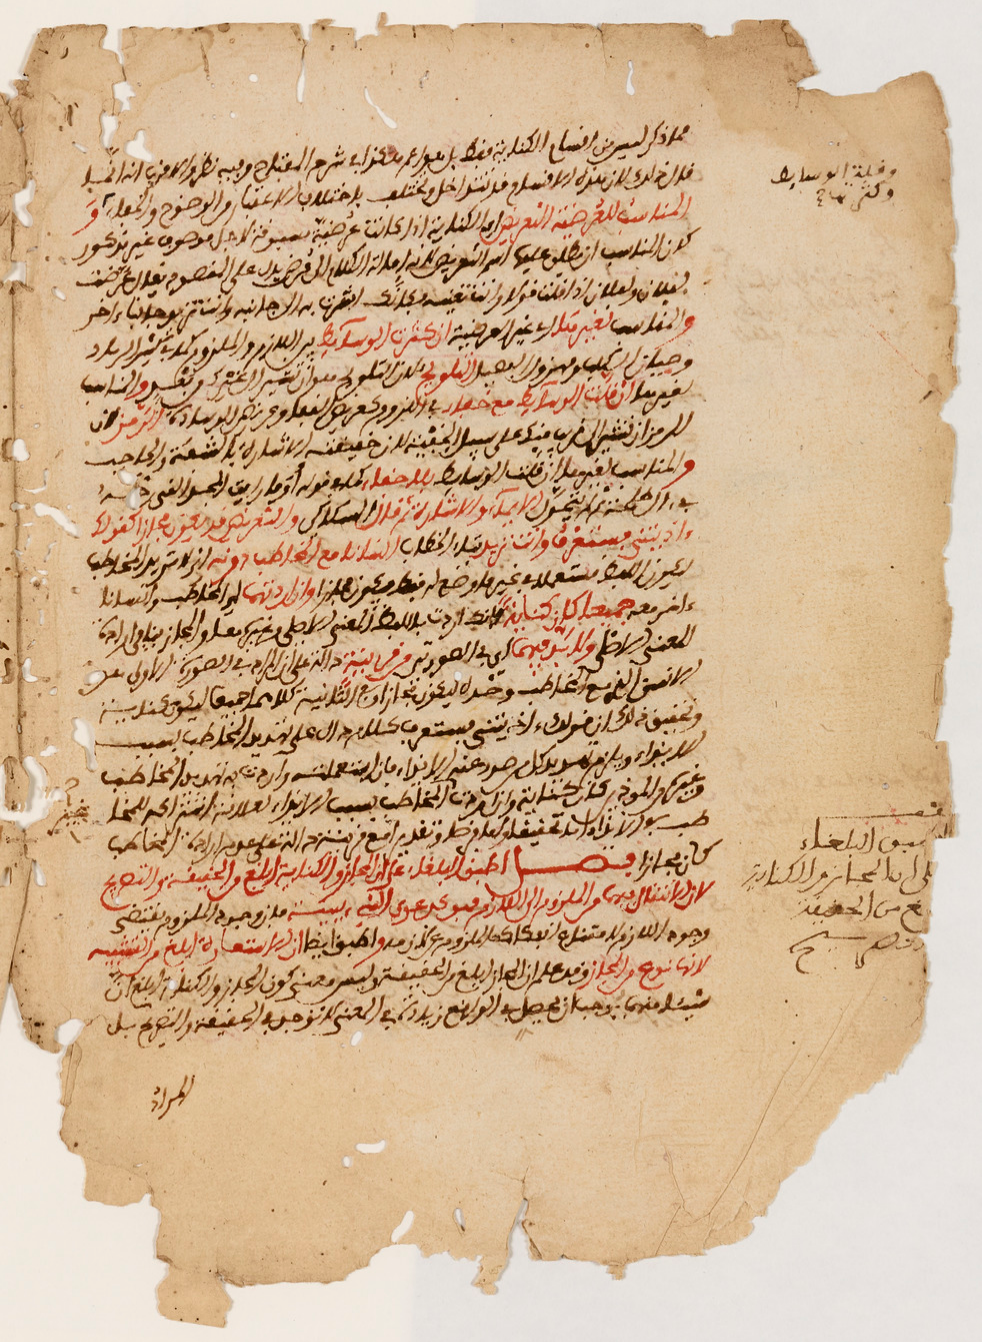 مما ذكر ليس من اقسام الكناية فقط بل هو اعم كذا في شرح المفتاح وفيه نظر والاقرب انه انما
قال ذلك لان هذه الاقسام قد تتداخل وتختلف باختلاف الاعتبارات من الوضوح والخفاء و
وقلة الوسايط
وكثرتها صح
المناسب للعرضية التعريض اي الكناية اذا كانت عرضية مسوقة لاجل موصوف غير مذكور
كان المناسب ان يطلق عليها اسم التعريض لانه امالة الكلام الى عرض يدل على المقصود يقال عرضت
لفلان وبفلان اذا قلت قولا وانت تعنيه فكانك اشرت به الى جانب وانت تريد جانبا ءاخر
والمناسب لغيرها اي غير العرضية ان كثرت الوسايط بين اللازم والملزوم كما في كثير الرماد
وجبان الكلب ومهزول الفصيل التلويح لان التلويح هو ان تشير الى غيرك من بعيد والمناسب
لغيرها ان قلت الوسايط مع خفاء في اللزوم كعريض القفا وعريض الوسادة الرمز لان
الرمز ان تشير الى قريب منك على سبيل الخفية لان حقيقته الاشارة بالشفة والحاجب
والمناسب لغيرها ان قلت الوسايط بلا خفاء كما في قوله أوما رايت المجد القى رحله
في ءال طلحة ثم لم يتحول الايماء والاشارة ثم قال السكاكي والتعريض قد يكون مجازا كقولك
ءاذيتني فستعرف وانت تريد بتاء الخطاب انسانا مع المخاطب دونه اي لا تريد المخاطب
ليكون اللفظ مستعملا في غير ما وضع له فقط فيكون مجازا وان اردتهما اي المخاطب وانسانا
ءاخر معه جميعا كان كناية لانك اردت باللفظ المعنى الاصلي وغيره معا والمجاز ينافي ارادة
المعنى الاصلي ولا بد فيهما اي في الصورتين من قرينة دالة على ان المراد في الصورة الاولى هو
الانسان الذي مع المخاطب وحده ليكون مجازا وفي الثانية كلاهما جميعا ليكون كناية
وتحقيق ذلك ان قولك ءاذيتني فستعرف كلام دال على تهديد المخاطب بسبب
الايذاء ويلزم منه تهديد كل من صدر عنه الايذاء فان استعملته واردت به تهديد المخاطب
وغيره من الموذين كان كناية وان اردت تهديد غير المخاطب بسبب الايذاء لعلاقة اشتراكه للمخا
طب في الايذاء اما تحقيقا واما فرضا وتقديرا مع قرينة دالة على عدم ارادة المخاطب
كان مجازا فصل اطبق البلغاء على ان المجاز والكناية ابلغ من الحقيقة والتصريح
لان الانتقال فيهما من الملزوم الى اللازم فهو كدعوى الشيء ببينة فان وجود الملزوم يقتضي
وجود اللازم لامتناع انفكاك الملزوم عن لازمه واطبقوا ايضا ان الاستعارة ابلغ من التشبيه
لانها نوع من المجاز وقد علم ان المجاز ابلغ من الحقيقة وليس معنى كون المجاز والكناية ابلغ ان
شيئا منهما يوجب ان يحصل في الواقع زيادة في المعنى لا توجد في الحقيقة والتصريح بل
المراد
اطبق البلغاء
على ان المجاز والكناية
ابلغ من الحقيقة